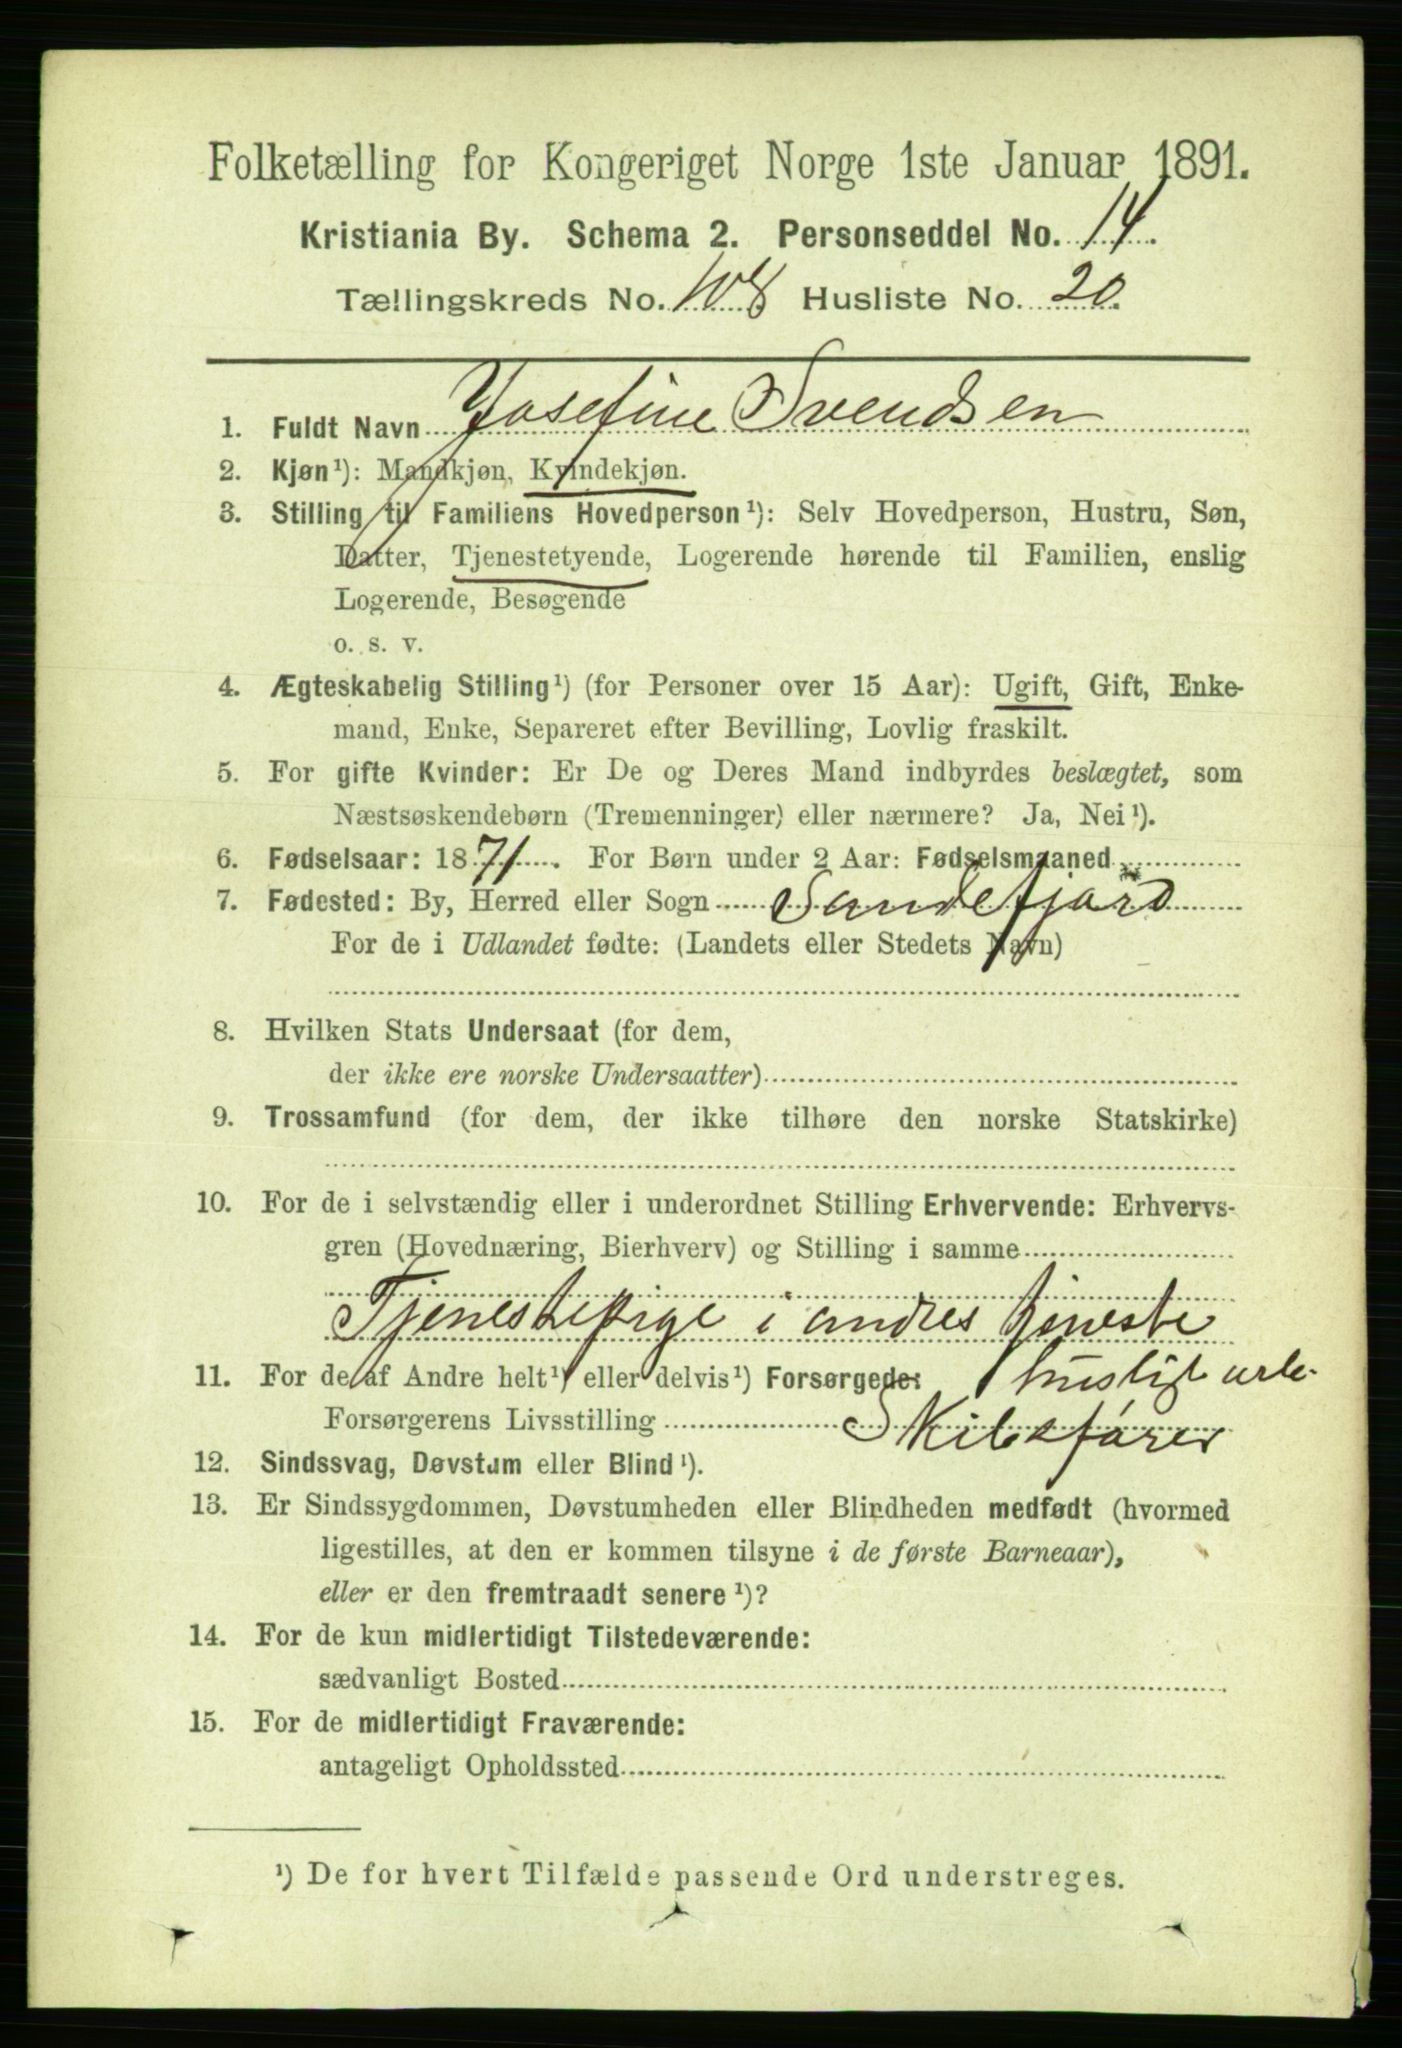 Folketælling for Kongeriget Norge 1ste Januar 1891.
Kristiania By. Schema 2. Personseddel No. 14.
Tællingskreds No. 108 Husliste No. 20.
1. Fuldt Navn Josefine Svendsen
2. Kjøn¹): Mandkjøn, Kvindekjøn.
3. Stilling til Familiens Hovedperson¹): Selv Hovedperson, Hustru, Søn,
Datter, Tjenestetyende, Logerende hørende til Familien, enslig
Logerende, Besøgende
o. s. v.
4. Ægteskabelig Stilling¹) (for Personer over 15 Aar): Ugift, Gift, Enke-
mand, Enke, Separeret efter Bevilling, Lovlig fraskilt.
5. For gifte Kvinder: Er De og Deres Mand indbyrdes beslægtet, som
Næstsøskendebørn (Tremenninger) eller nærmere? Ja, Nei¹).
6. Fødselsaar: 1871. For Børn under 2 Aar: Fødselsmaaned
7. Fødested: By, Herred eller Sogn Sandefjord
For de i Udlandet fødte: (Landets eller Stedets Navn)
8. Hvilken Stats Undersaat (for dem,
der ikke ere norske Undersaatter)
9. Trossamfund (for dem, der ikke tilhøre den norske Statskirke)
10. For de i selvstændig eller i underordnet Stilling Erhvervende: Erhvervs-
gren (Hovednæring, Bierhverv) og Stilling i samme
Tjenestepige i andres tjeneste
husligt
11. For de af Andre helt¹) eller delvis¹) Forsørgede:
Forsørgerens Livsstilling Skibsfører
12. Sindssvag, Døvstum eller Blind¹).
13. Er Sindssygdommen, Døvstumheden eller Blindheden medfødt (hvormed
ligestilles, at den er kommen tilsyne i de første Barneaar),
eller er den fremtraadt senere¹)?
14. For de kun midlertidigt Tilstedeværende:
sædvanligt Bosted
15. For de midlertidigt Fraværende:
antageligt Opholdssted
¹) De for hvert Tilfælde passende Ord understreges.